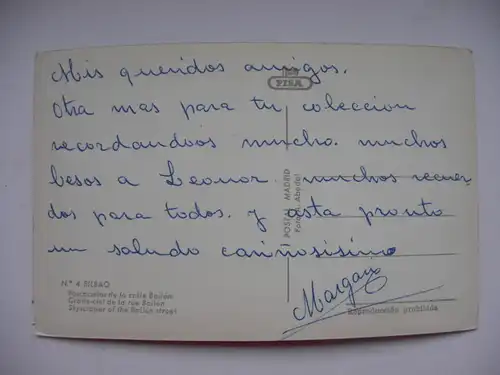 Mis queridos amigos.
FISA
Otra mas para tu coleccion
recordandoos mucho. muchos
besos a Leonor muchos recuer-
dos para todos. y asta pronto
un saludo cariñosisimo
POSTAL MADRID
N.º 4 BILBAO
Rascacielos de la calle Bailén
Gratte-ciel de la rue Bailen
Skyscraper of the Bailen street
Reproducción prohibida